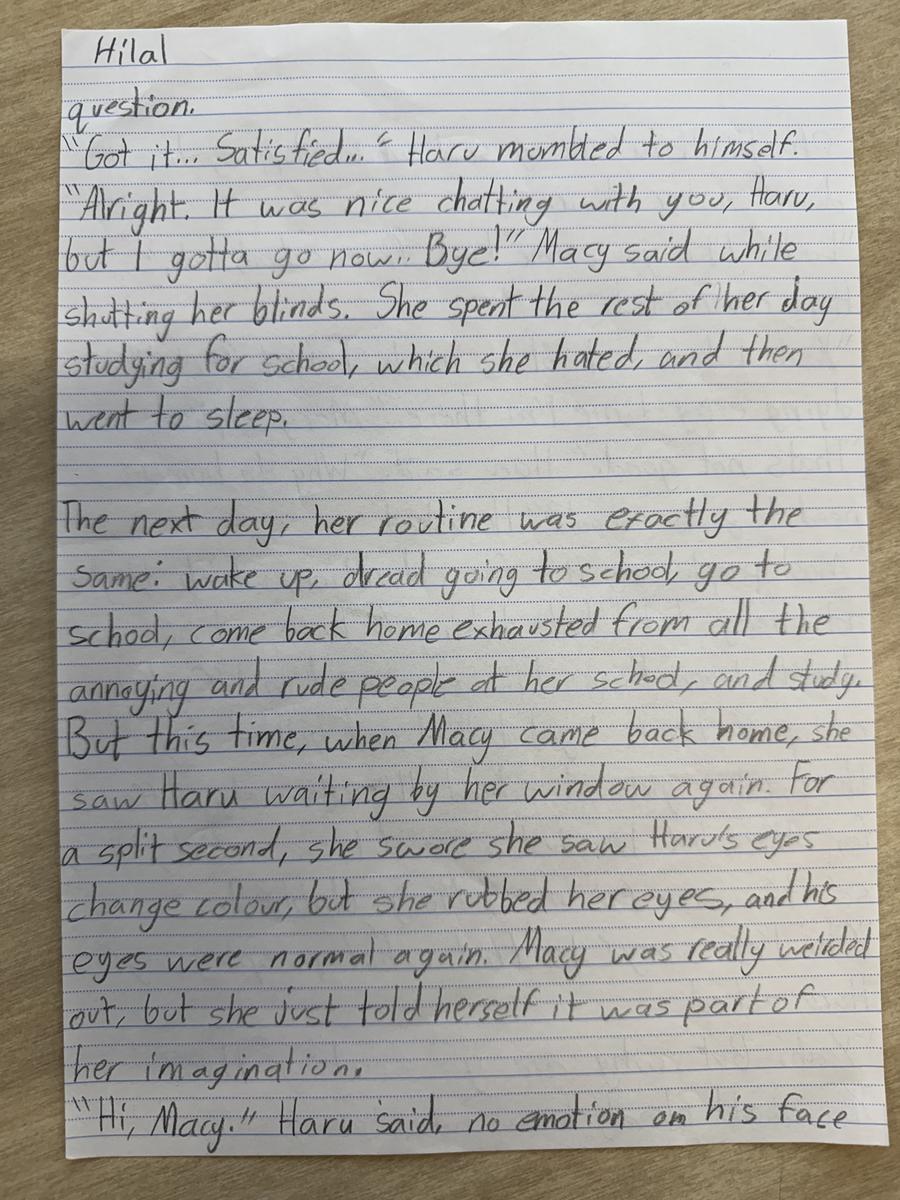 Hilal
question.
"Got it... Satisfied..." Haru mumbled to himself.
"Alright. It was nice chatting with you, Haru,
but I gotta go now.. Bye!" Macy said while
shutting her blinds. She spent the rest of her day
studying for school, which she hated, and then
went to sleep.
The next day, her routine was exactly the
same: wake up, dread going to school, go to
school, come back home exhausted from all the
annoying and rude people at her school, and study.
But this time, when Macy came back home, she
saw Haru waiting by her window again. For
a split second, she swore she saw Haru's eyes
change colour, but she rubbed her eyes, and his
eyes were normal again. Macy was really weirded
out, but she just told herself it was part of
her imagination.
"Hi, Macy." Haru said, no emotion on his face